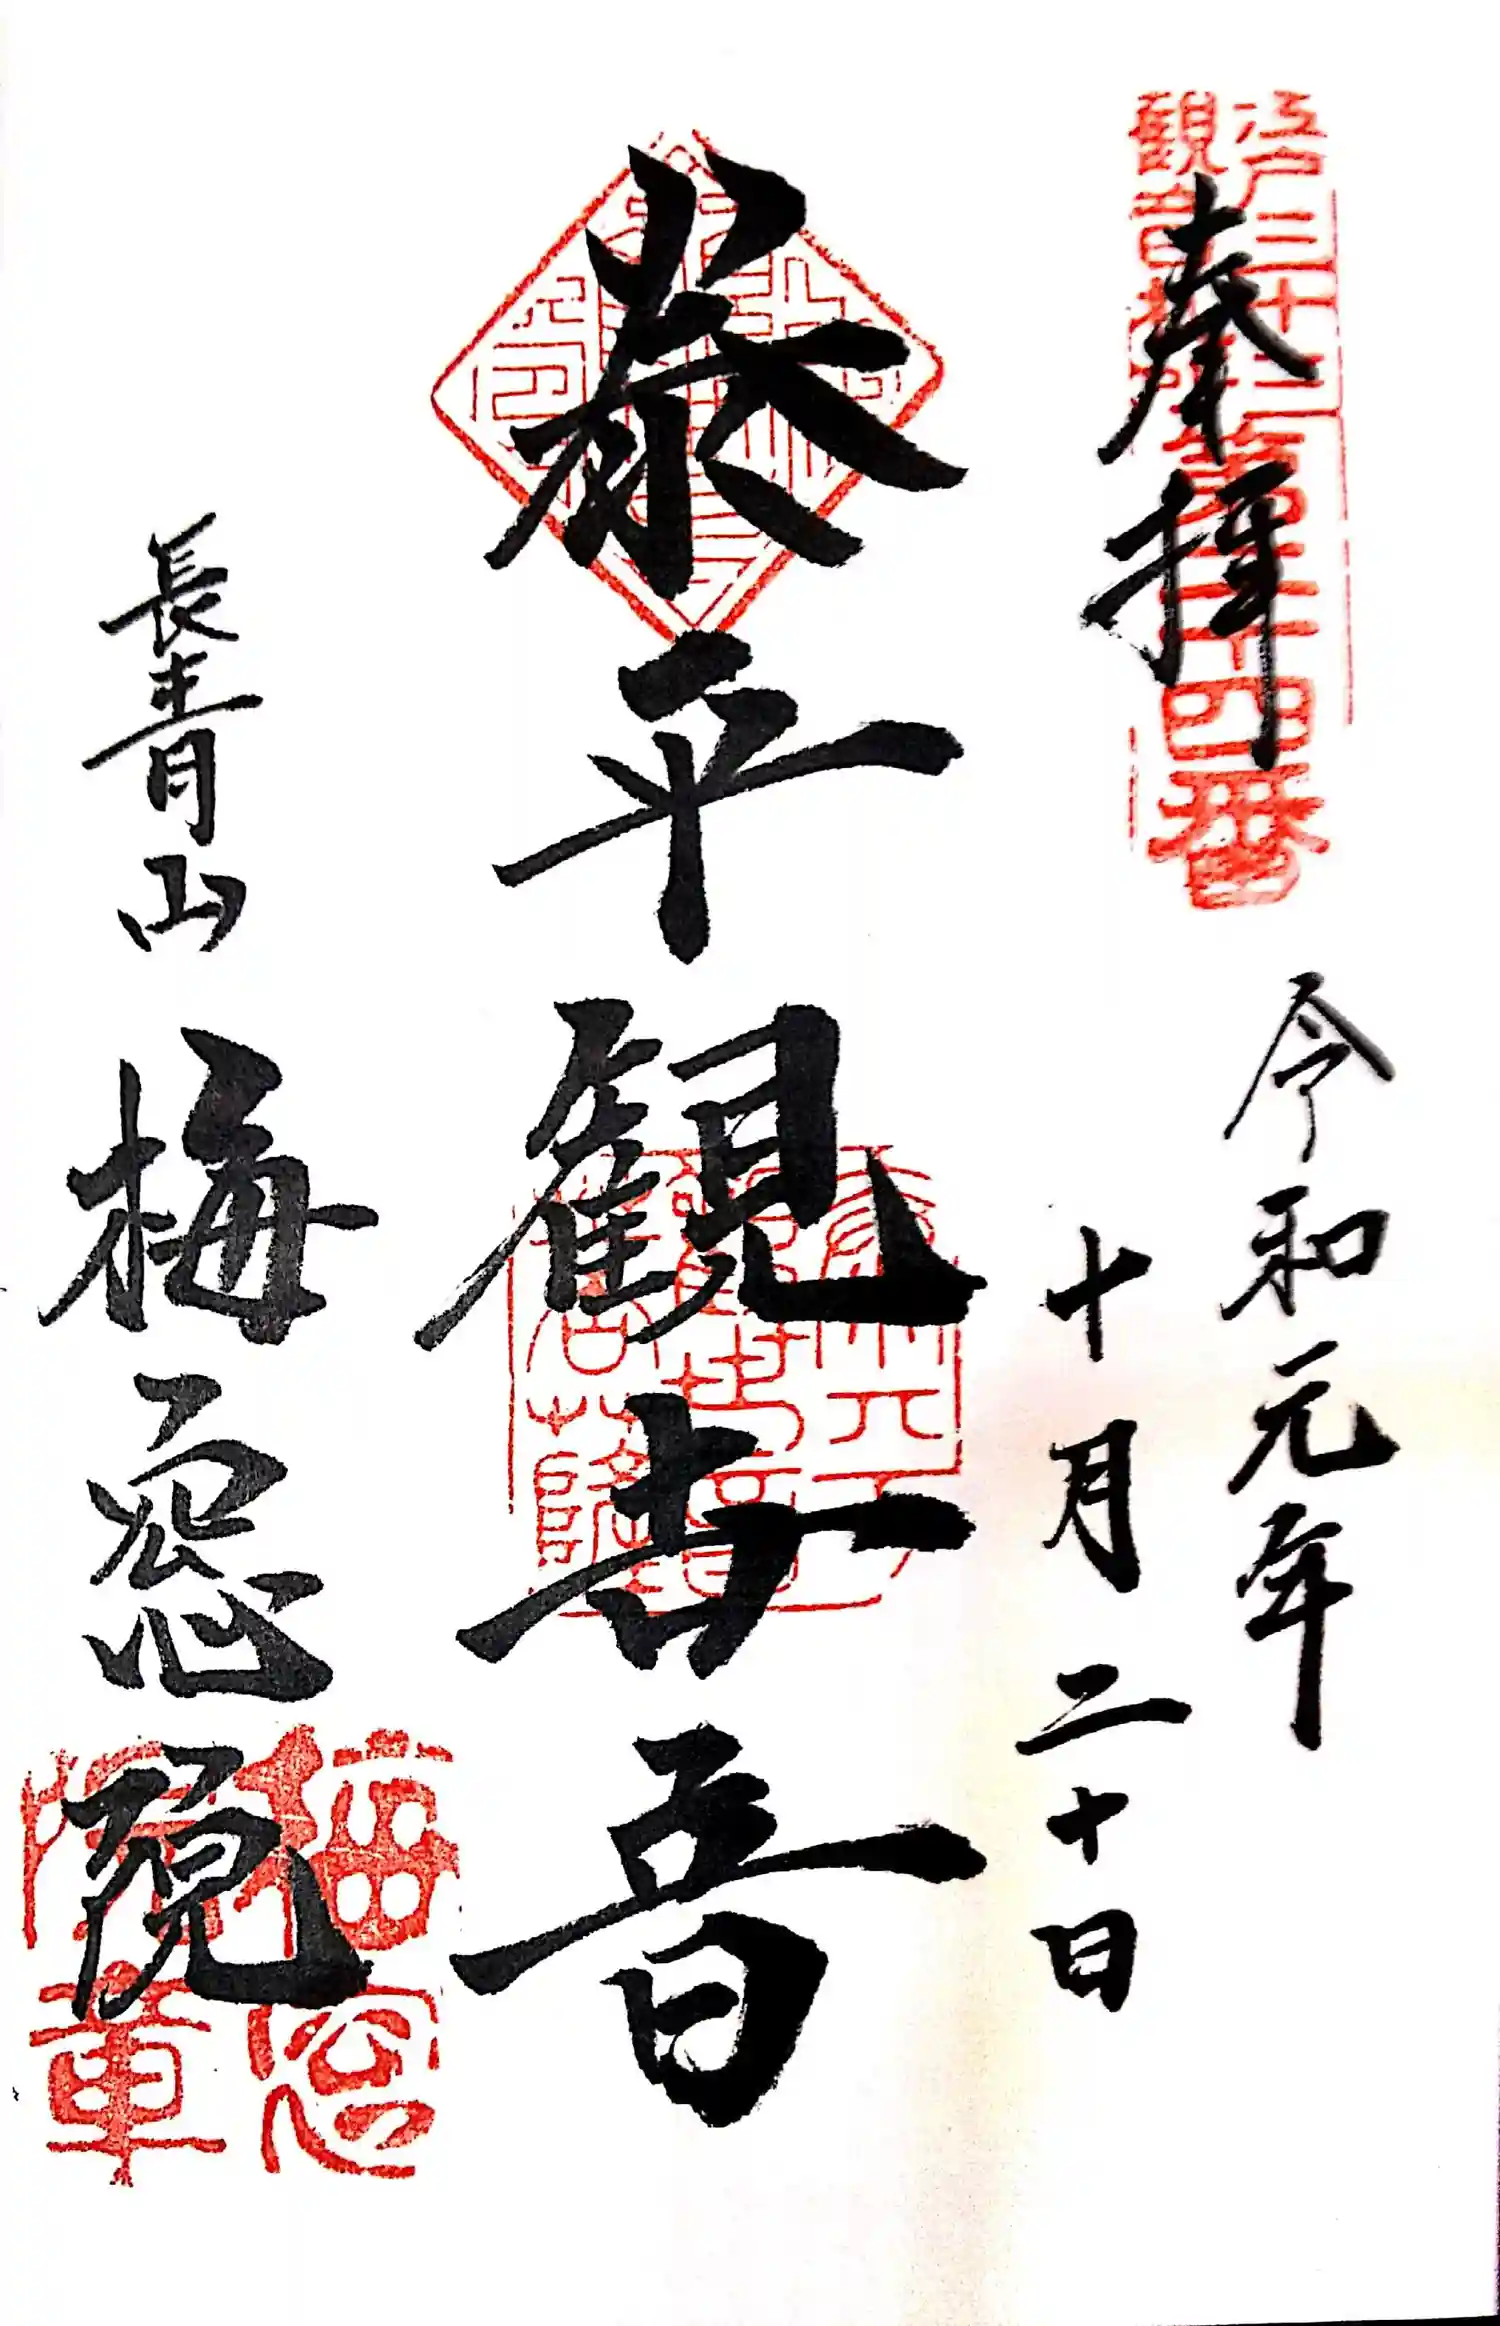 江戸三十三
観音札所
第二十四番
奉拝
令和元年
十月二十日
泰平観世音
長青山 梅窓院
梅窓
院章